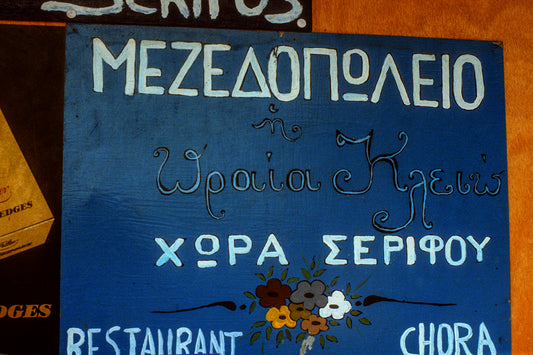 SERIFOS
ΜΕΖΕΔΟΠΩΛΕΙΟ
ἡ
Ὡραία Κλειώ
ΧΩΡΑ ΣΕΡΙΦΟΥ
EDGES
EDGES
RESTAURANT CHORA